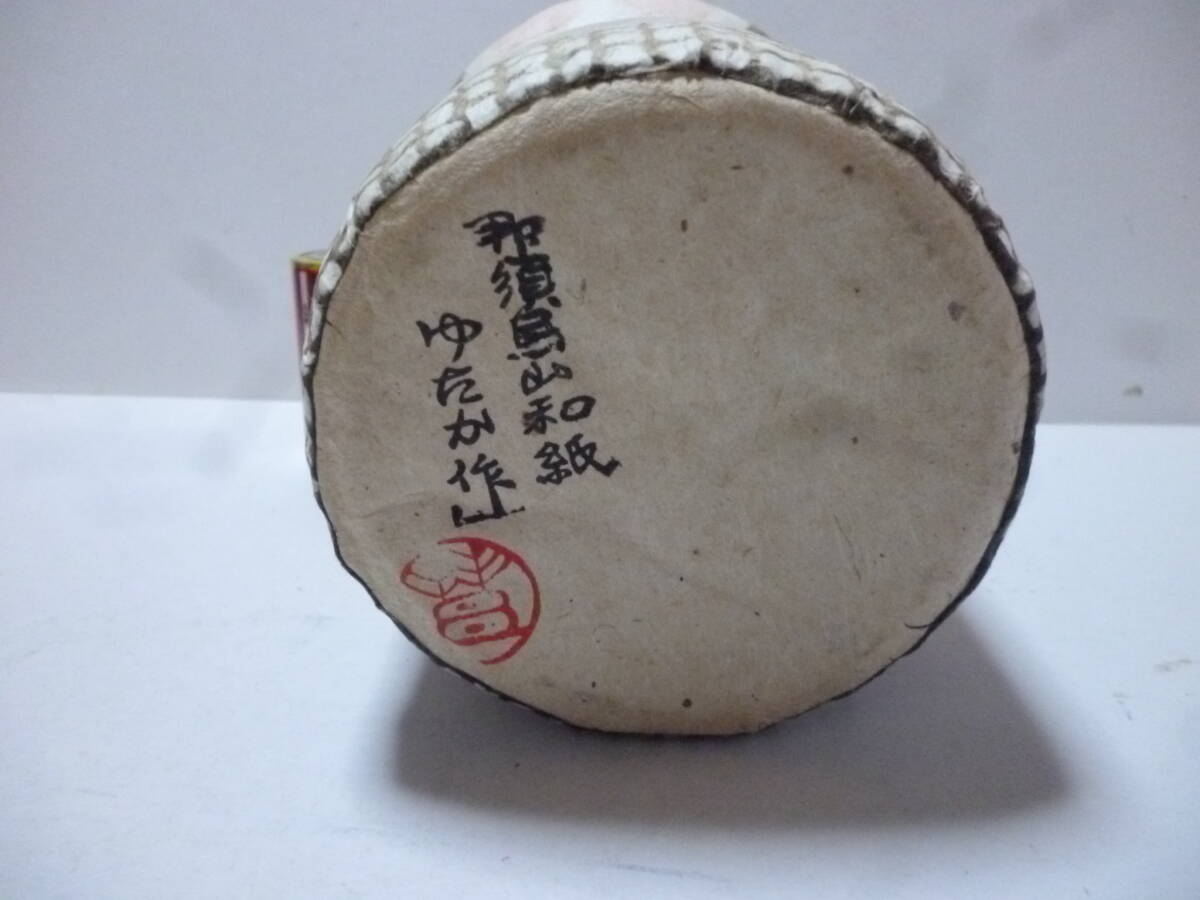 那須烏山和紙
ゆたか作